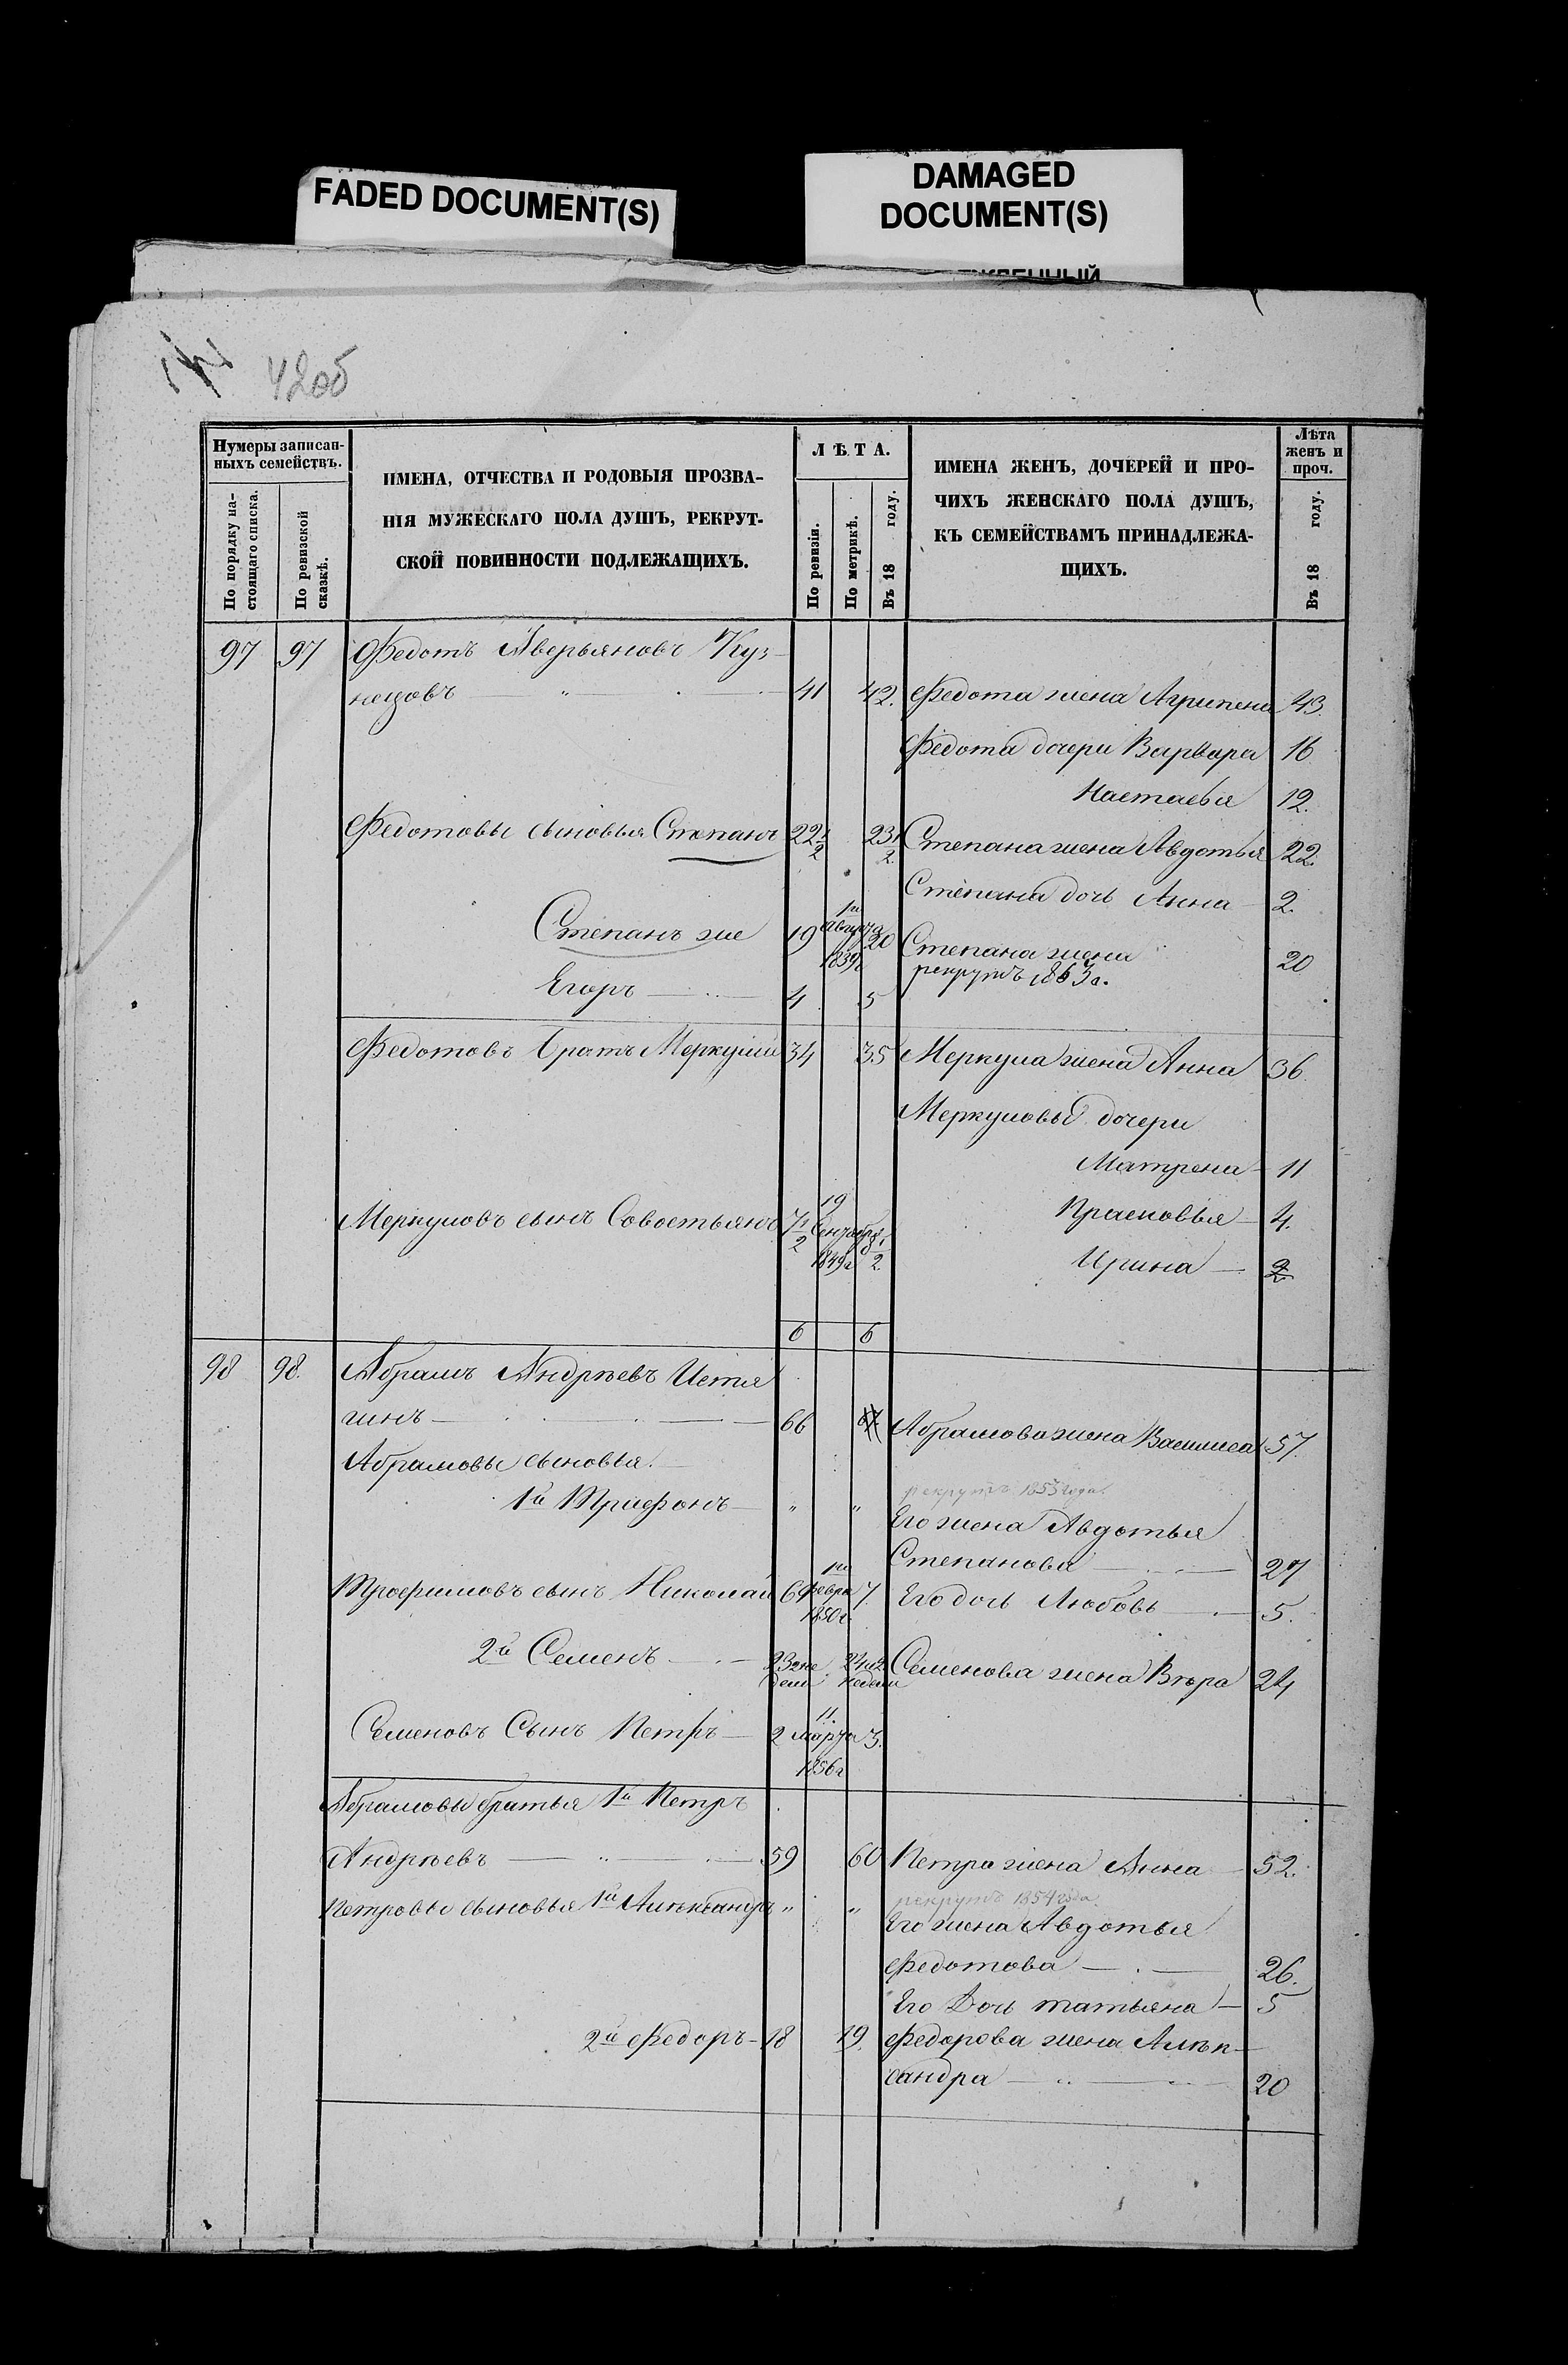 FADED DOCUMENT(S)
DAMAGED
DOCUMENT(S)
42об
Нумеры записан-
ныхъ семействъ.
По порядку на-
стоящаго списка.
По ревизской
сказкѣ.
ИМЕНА, ОТЧЕСТВА И РОДОВЫЯ ПРОЗВА-
НІЯ МУЖЕСКАГО ПОЛА ДУШЪ, РЕКРУТ-
СКОЙ ПОВИННОСТИ ПОДЛЕЖАЩИХЪ.
ЛѢТА.
По ревизіи.
По метрикѣ.
Въ 18 году.
ИМЕНА ЖЕНЪ, ДОЧЕРЕЙ И ПРО-
ЧИХЪ ЖЕНСКАГО ПОЛА ДУШЪ,
КЪ СЕМЕЙСТВАМЪ ПРИНАДЛЕЖА-
ЩИХЪ.
Лѣта
женъ и
проч.
Въ 18 году.
97 97 Федотъ Аверьяновъ Куз-
нецовъ 41 42. Федота жена Агрипена 43.
Федота дочери Варвара 16
Настасья 12.
Федотовы сыновья Степанъ 22 1/2 23 1/2 Степана жена Авдотья 22.
Степана дочь Анна 2.
Степанъ же 19 1го Августа 1839г 20 Степана жена 20
рекрутъ 1863г.
Егоръ 4 5
Федотовъ братъ Меркулъ 34 35 Меркула жена Анна 36
Меркуловы дочери
Матрена 11
Меркуловъ сынъ Савостьянъ 7 1/2 19 Сентября 1849г 8 1/2 Прасковья 4.
Ирина 2
6 6
98 98. Абрамъ Андрѣевъ Истя
гинъ 66 67. Абрамова жена Василиса 57.
Абрамовы сыновья.
рекрутъ 1853 года.
1й Трифонъ " " Его жена Авдотья
Степанова 27
Трофимовъ сынъ Николай 6 1го Февра 1850г 7. Его дочь Любовь 5.
2й Семенъ 23 2 не дели 24 и 2 недели Семенова жена Вѣра 24
Семеновъ Сынъ Петръ 2 11. марта 1856г 3.
Абрамовы братья 1й Петръ
Андрѣевъ 59 60 Петра жена Анна 52.
рекрутъ 1854 года
Петровы сыновья 1й Алѣксандръ " " Его жена Авдотья
Федотова 26.
Его Дочь татьяна 5
2й Федоръ 18 19. Федорова жена Алѣк-
сандра 20